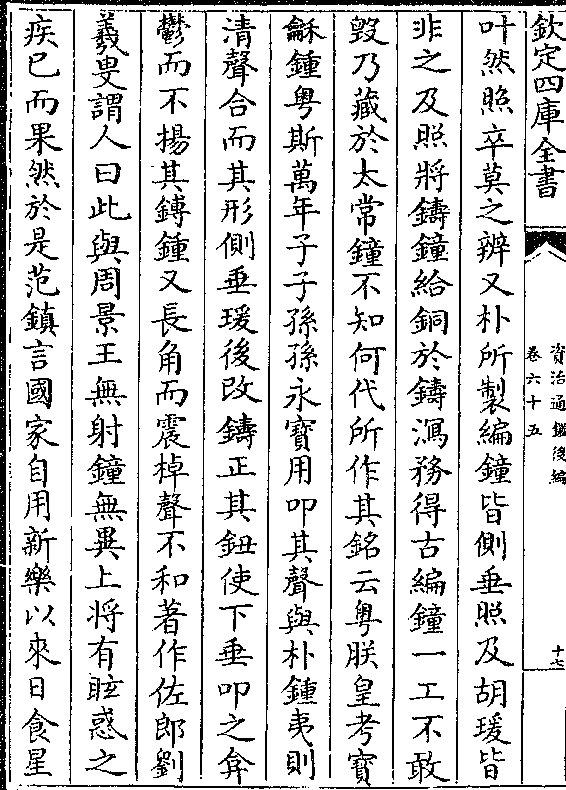 欽定四庫全書
資治通鑑後編
卷六十五
十七
叶然照卒莫之辨又朴所製編鐘皆側垂照及胡瑗皆
非之及照將鑄鐘給銅於鑄瀉務得古編鐘一工不敢
毀乃藏於太常鐘不知何代所作其銘云粤朕皇考寶
龢鍾粤斯萬年子子孫孫永寶用叩其聲與朴鍾夷則
清聲合而其形側垂瑗後改鑄正其鈕使下垂叩之弇
鬱而不揚其鎛鍾又長角而震棹聲不和著作佐郎劉
羲叟謂人曰此與周景王無射鐘無異上將有眩惑之
疾已而果然於是范鎮言國家自用新樂以來日食星